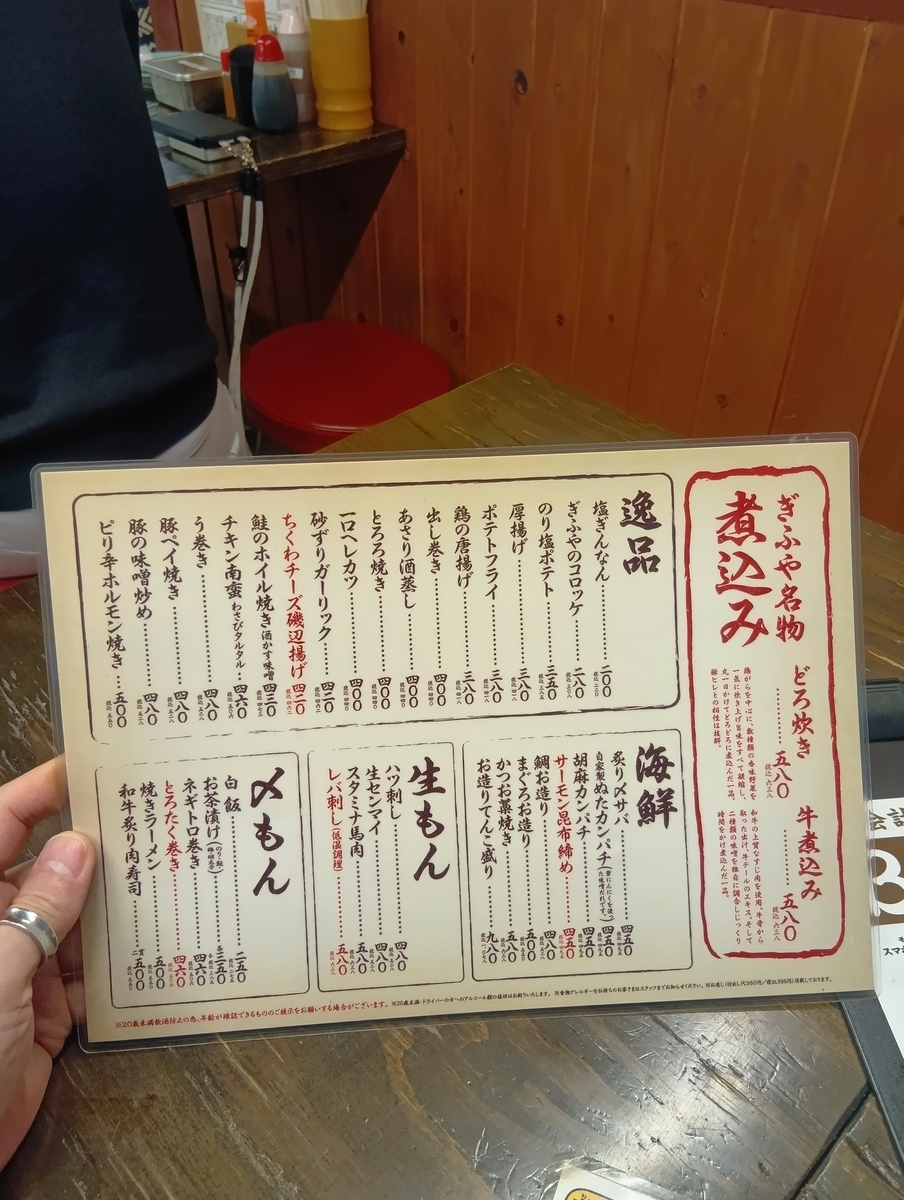 ぎふや名物
煮込み
どろ炊き
五八〇
税込 六三八
鶏がらを中心に、数種類の香味野菜を
一気に炊き上げ旨味をすべて凝縮し、
丸一日かけてどろどろに煮込んだ一品。
豚ヒレとの相性は抜群。
牛煮込み
五八〇
税込 六三八
和牛の上質なすじ肉を使用。牛骨から
取った出汁、牛テールのエキス、そして
二種類の味噌を独自に調合しじっくり
時間をかけ煮込んだ一品。
逸品
塩ぎんなん 二〇〇
ぎふやのコロッケ 二八〇
のり塩ポテト 三五〇
厚揚げ 三八〇
ポテトフライ 三八〇
鶏の唐揚げ 三八〇
出し巻き 四〇〇
あさり酒蒸し 四〇〇
とろろ焼き 四〇〇
一口ヘレカツ 四〇〇
砂ずりガーリック 四二〇
ちくわチーズ磯辺揚げ 四二〇
鮭のホイル焼き 酒かす味噌 四三〇
チキン南蛮 わさびタルタル 四六〇
う巻き 四八〇
豚ペイ焼き 四八〇
豚の味噌炒め 四八〇
ピリ辛ホルモン焼き 五〇〇
海鮮
炙り〆サバ 四五〇
自家製ぬたカンパチ 四五〇
胡麻カンパチ 四五〇
サーモン昆布締め 四五〇
鯛お造り 四八〇
まぐろお造り 五〇〇
かつお藁焼き 五八〇
お造りてんこ盛り 九八〇
生もん
ハツ刺し 四八〇
生センマイ 四八〇
スタミナ馬肉 五八〇
レバ刺し(低温調理) 五八〇
〆もん
白飯 二五〇
お茶漬け 各三五〇
ネギトロ巻き 四六〇
とろたく巻き 四六〇
焼きラーメン 五〇〇
和牛炙り肉寿司 二貫 五〇〇
※20歳未満飲酒防止の為、年齢が確認できるもののご提示をお願いする場合がございます。 ※20歳未満・ドライバーの方へのアルコール類の提供はお断りいたします。 ※食物アレルギーをお持ちのお客さまはスタッフまでお知らせください。 ※お通し(付出し代360円/税込396円)頂戴しております。
会計
スマホ